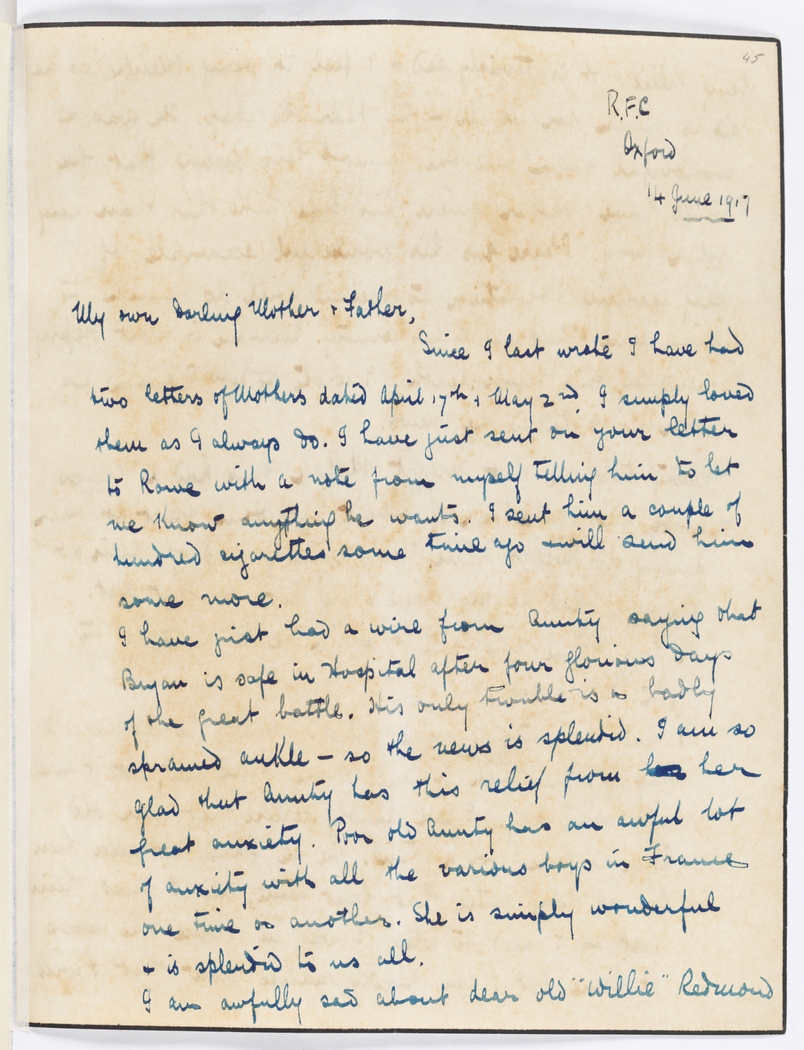 45
R.F.C
Oxford
14 June 1917
My own Darling Mother + Father,
Since I last wrote I have had
two letters of Mothers dated April 17th + May 2nd. I simply loved
them as I always do. I have just sent on your letter
to Rowe with a note from myself telling him to let
me know anything he wants. I sent him a couple of
hundred cigarettes some time ago + will send him
some more.
I have just had a wire from Aunty saying that
Bryan is safe in Hospital after four glorious days
of the great battle. His only trouble is a badly
sprained ankle — so the news is splendid. I am so
glad that Aunty has this relief from her
great anxiety. Poor old Aunty has an awful lot
of anxiety with all the various boys in France
one time or another. She is simply wonderful
+ is splendid to us all.
I am awfully sad about dear old "Willie" Redmond